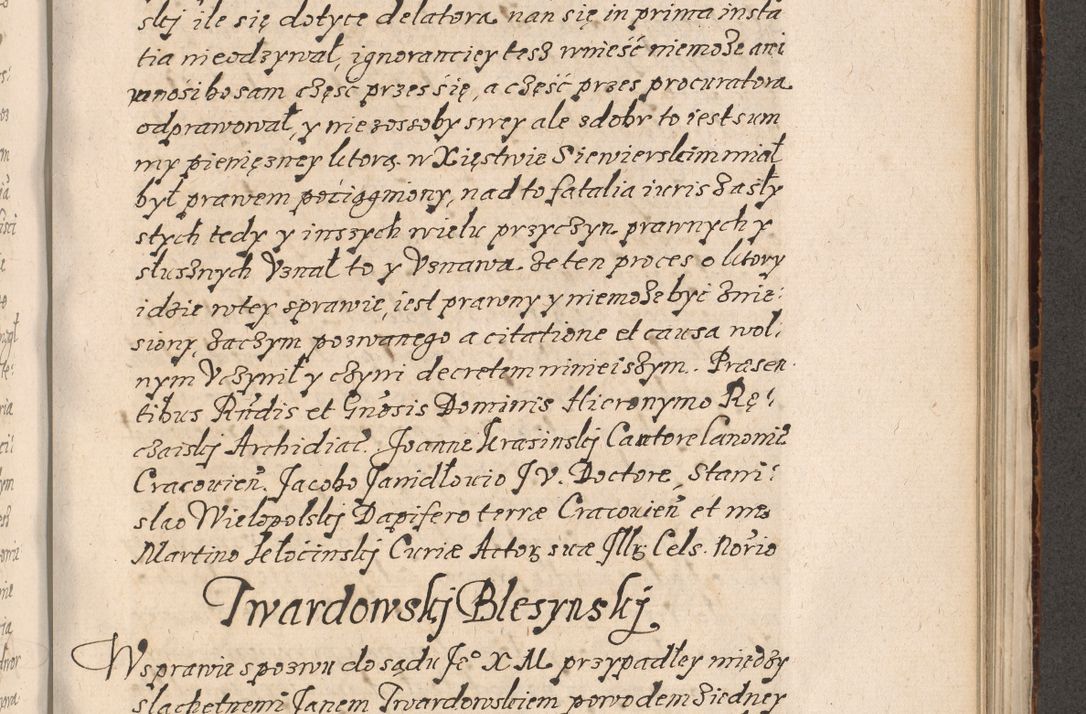 skj ile się dotycze delatora nan się in prima insta
tia nieodzywał, ignoranciey tesz wnieść niemoże ani
wnośi bo sam część przes się, a część przes procuratora
odprawował, y nie zossoby swey ale zdobr to iest sum
my pieniężney ktorą w Xięstwie Siewierskim miał
był prawem poćiągniony, nad to fatalia iuris zaśły
stych tedy y inszych wielu przyczyn prawnych y
słusznych Vznał to y Vznawa że ten proces o ktory
idzie wtey sprawie, iest prawny y niemoże być znie:
siony, zaczym pozwanego a citatione et causa wol:
nym Vczynił y czyni decretem ninieiszym. Præsen
tibus Rndis et Gnosis Dominis Hieronymo Rę:
czaiskj Archidiac. Joanne Krasinskj Cantore Canonic
Cracouien̄. Jacobo Janidłouio J V. Doctore, Stani:
slao Wielopolskj Dapifero terræ Cracouien̄ et me
Martino Kełocinskj Curiæ Actor suæ Illr Cels. Norio
Twardowskj Blesynskj
Wsprawie spozwu do sądu Je° X M przypadłey między
slachetnemi Janem Twardowskiem powodem ziedney